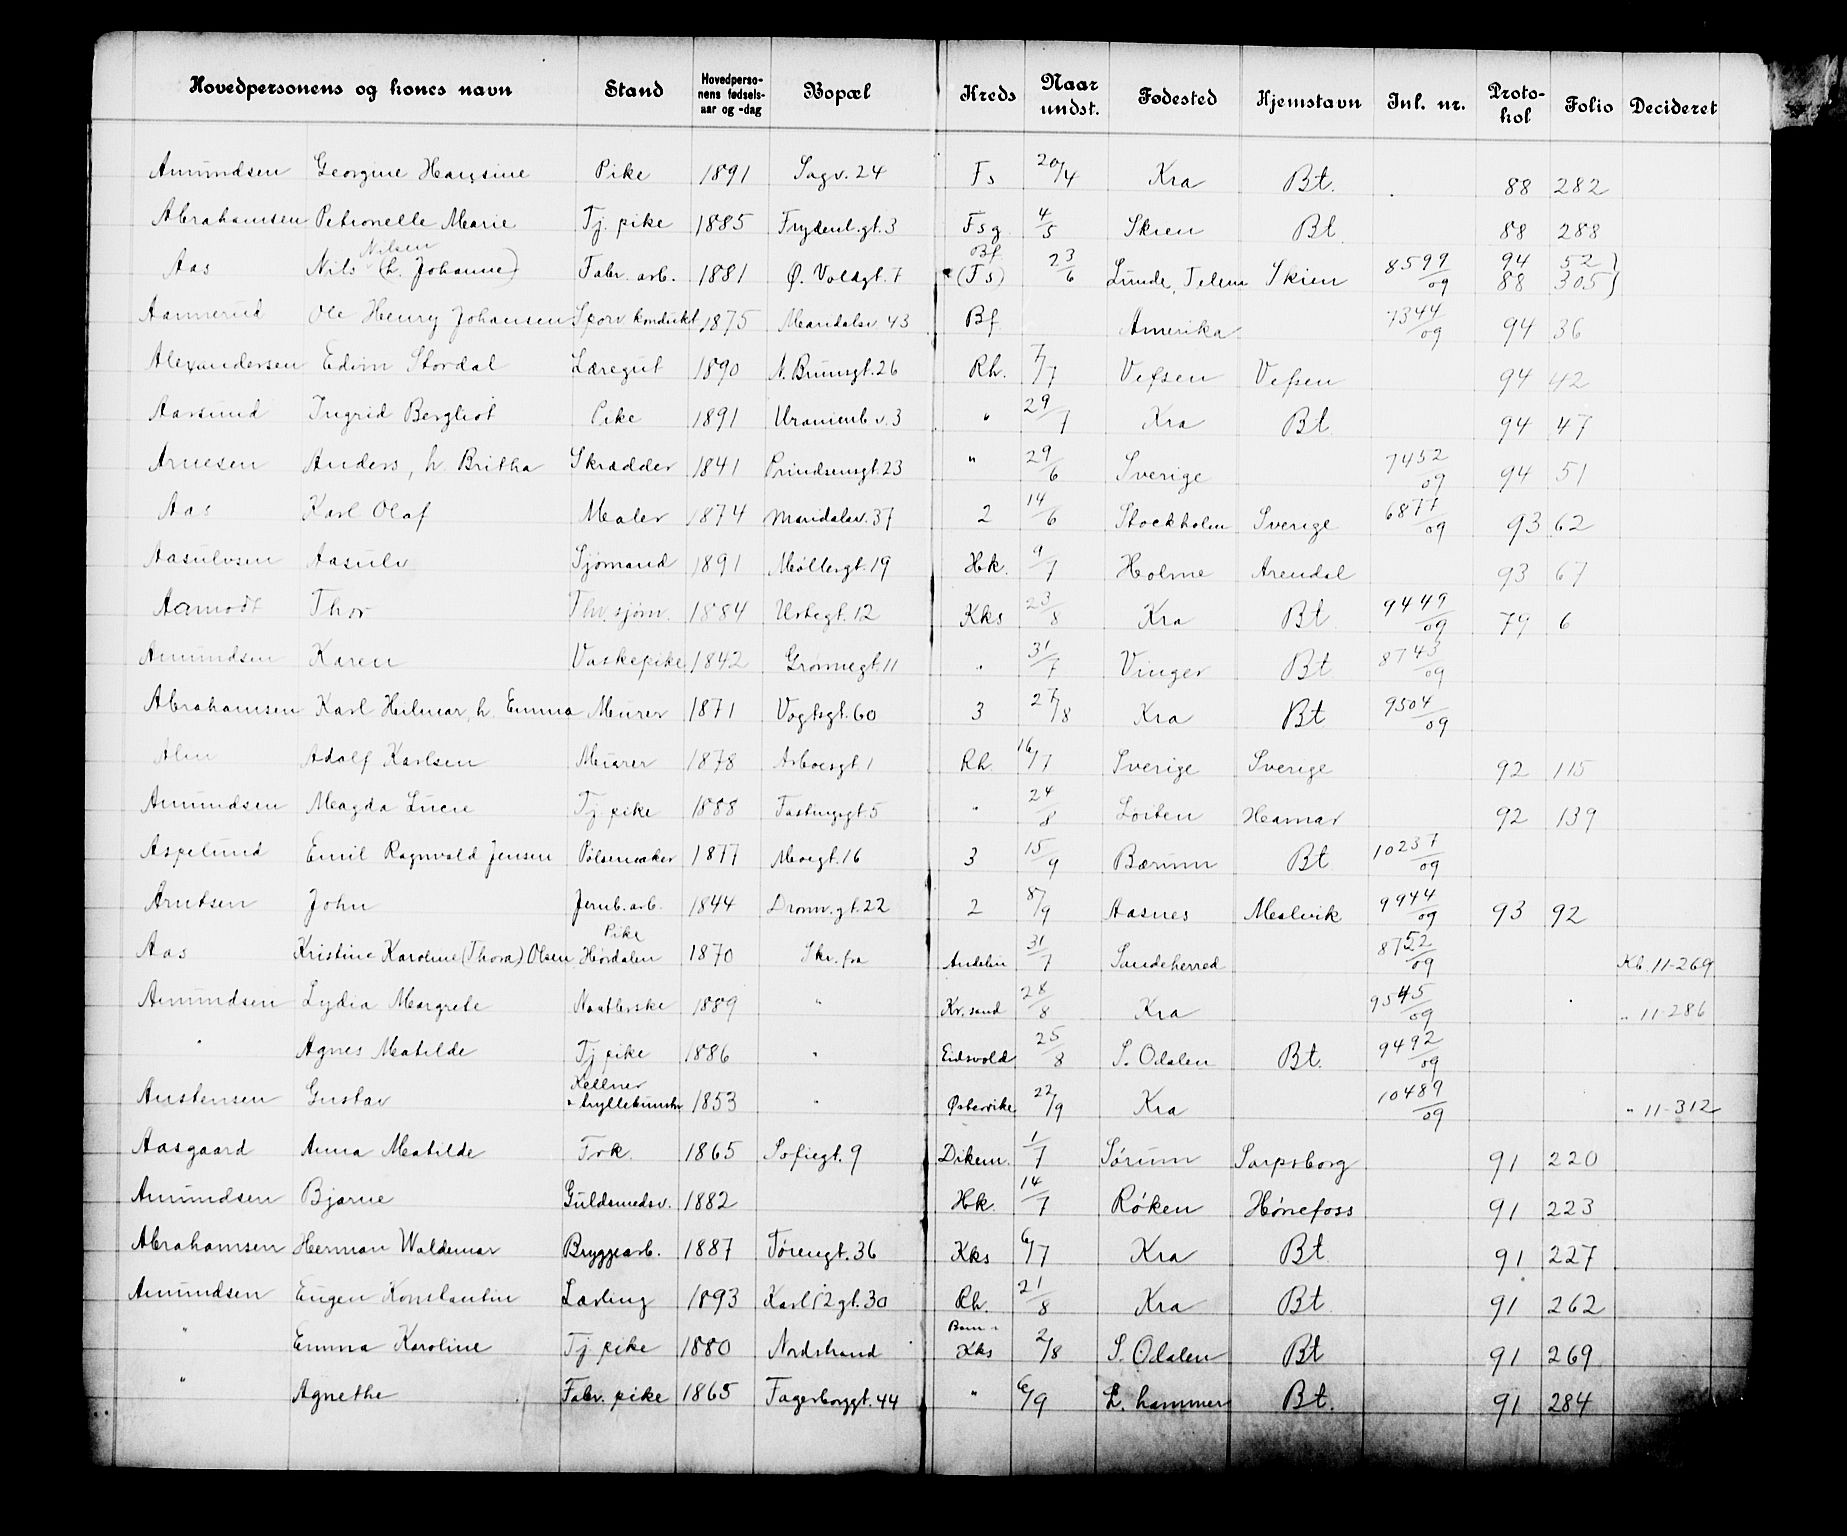 Hovedpersonens og kones navn Stand Hovedpersonens fødselsaar og -dag Bopæl Kreds Naar undst. Fødested Hjemstavn Inl. nr. Protokol Folio Decideret
Amundsen Georgine Hansine Pike 1891 Sagv. 24 Fs 20/4 Kra Bt. 88 282
Abrahamsen Petronelle Marie Tj. pike 1885 Frydenl.gt. 3 Fsg. 4/5 Skien Bt 88 288
Aas Nils Nilsen (h. Johanne) Fabr. arb. 1881 Ø. Voldgt. 7 Bf (Fs) 23/6 Lunde, Telem Skien 8599/09 94 52 } 88 305 }
Aamerud Ole Henry Johansen Sporv. kondukt 1875 Maridalsv 43 Bf Amerika 7344/09 94 36
Alexandersen Edvin Stordal Læregut 1890 N. Brunsgt. 26 Rh. 7/7 Vefsen Vefsen 94 42
Aarsund Ingrid Bergliot Pike 1891 Uranienb.v. 3 " 29/7 Kra Bt 94 47
Arnesen Anders, h Britha Skrædder 1841 Prindsensgt. 23 " 29/6 Sverige 7452/09 94 51
Aas Karl Olaf Maler 1874 Maridalsv. 37 2 14/6 Stockholm Sverige 6877/09 93 62
Aasulvsen Aasulv Sjømand 1891 Møllergt. 19 Hk. 9/7 Holme Arendal 93 67
Aamodt Thor Thv. sjøm. 1884 Urtegt. 12 Kks 23/8 Kra Bt 9449/09 79 6
Amundsen Karen Vaskepike 1842 Grønnegt. 11 " 31/7 Vinger Bt 8743/09
Abrahamsen Karl Hilmar, h. Emma Murer 1871 Vogtsgt. 60 3 27/8 Kra Bt 9504/09
Alm Adolf Karlsen Murer 1878 Arboesgt. 1 Rh. 16/7 Sverige Sverige 92 115
Amundsen Magda Lucie Tj. pike 1888 Fastingsgt. 5 " 24/8 Løiten Hamar 92 139
Aspelund Emil Ragnvald Jensen Pølsemaker 1877 Moegt. 16 3 15/9 Bærum Bt 10237/09
Arntsen John Jernb. arb. 1844 Dronn. gt. 22 2 8/9 Aasnes Malvik 9944/09 93 92
Aas Kristine Karoline (Thora) Olsen Pike Hørdalen 1870 Skr. fra 31/7 Sandeherred 8752/09 Kb. 11-269
Amundsen Lydia Margrete 1889 " Kr. sand 28/8 Kra 9545/09 " 11-286
" Agnes Matilde Tj pike 1886 " Eidsvold 25/8 S. Odalen Bt. 9492/09
Austensen Gustav Kellner 1853 " 22/9 Kra 10489/09 " 11-312
Aasgaard Anna Matilde Frk. 1865 Sofiegt. 9 Dikem. 1/7 Sørum Sarpsborg 91 220
Amundsen Bjarne Guldsmedsv. 1882 Hk. 14/7 Røken Hønefoss 91 223
Abrahamsen Herman Waldemar Bryggearb. 1887 Tøiengt. 36 Kks 6/7 Kra Bt 91 227
Amundsen Eugen Konstantin Lærling 1893 Karl 12 gt. 30 Rh. 21/8 Kra Bt 91 262
" Emma Karoline Tj pike 1880 Nordstrand Kks 2/8 S. Odalen Bt 91 269
" Agnethe Fabr. pike 1865 Fagerborggt. 44 " 6/9 L. hammer Bt. 91 284